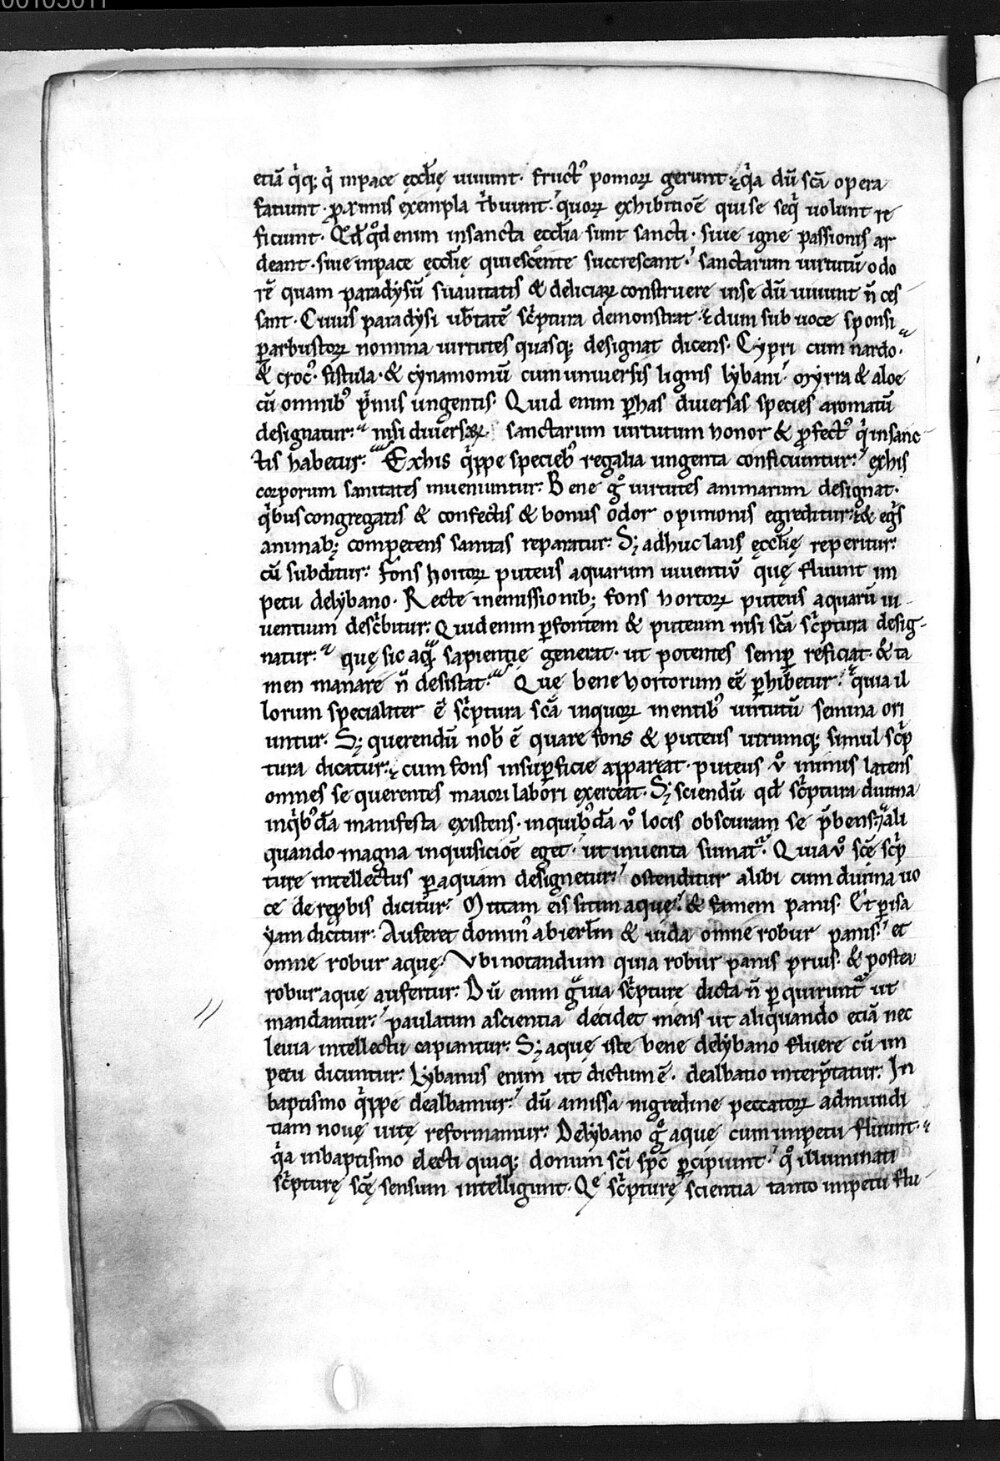 etiā q̇q; q̇ inpace ęcclię uiuunt. fruct᾽ pomoꝝ gerunt. q̇a dū scā opera
fatiunt. ꝓximis exempla t̄buunt. quoꝝ exhibitioē qui se seq̇ uolunt re
ficiunt. Qd̄ q̊d enim insancta ecclīa sunt sancti. siue igne passionis ar
deant. siue inpace ęcclię quiescente succrescant. sanctarum uirtutū odo
rē quam paradysū suauitatis & deliciaꝝ construere inse dū uiuunt n̄ ces
sant. Cuius paradysi ub̄tatē sc̄ptura demonstrat. dum sub uoce sponsi
ꝑarbustoꝝ nomina uirtutes quasq; designat dicens. Cypri cum nardo.
& croc᾽. fistula. & cynamomū cum uniuersis lignis lybani. myrra & aloe
cū omnib᾽ p̄mis ungentis. Quid enim ꝑhas diuersas species aromatū
designatur. nisi diuersaꝝ sanctarum uirtutum honor & ꝓfect᾽ q̇ insanc
tis habetur. Exhis q̇ppe specieb᾽ regalia ungenta conficiuntur. exhis
corporum sanitates inueniuntur. Bene g̊ uirtutes animarum designat.
q̇bus congregatis & confectis & bonus odor opinionis egreditur. & eg̊s
animab; competens sanitas reparatur. S; adhuc laus ęcclię reperitur.
cū subditur. Fons hortoꝝ puteus aquarum uiuentiū quę fluunt im
petu delybano. Recte inemissionib; fons hortoꝝ puteus aquarū ui
uentium desc̄bitur. Quid enim ꝑfontem & puteum nisi scā sc̄ptura desig
natur. quę sic aq̄ sapientię generat. ut potentes semꝑ reficiat. & ta
men manare n̄ desistat. Que bene hortorum eē ꝑhibetur. quia il
lorum specialiter ē sc̄ptura scā inquoꝝ mentib᾽ uirtutū semina ori
untur. S; querendū nob᾽ ē quare fons & puteus utrumq; simul sc̄p
tura dicatur. cum fons insuꝑficie appareat. puteus ů inimis latens
omnes se querentes maiori labori exerceat. S; sciendū qd̄ sc̄ptura diuina
inq̇b᾽dā manifesta existens. inquib᾽dā ů locis obscuram se p̄bens. ali
quando magna inquisicioē eget. ut inuenta sumat᾽. Quia ů scę sc̄p
ture intellectus ꝑaquam designetur. ostenditur alibi cum diuina uo
ce de rep̄bis dicitur. Mittam eis sitim aquę. & famem panis. Et ꝑisa
yam dicitur. Auferet domin᾽ abierlm̄ & iuda omne robur panis. et
omne robur aquę. Vbi notandum quia robur panis prius. & postea
robur aque aufertur. Dū enim g̊uia sc̄pture dicta n̄ ꝑquirunt᾽ ut
mandantur. paulatim ascientia decidet mens ut aliquando etiā nec
leuia intellectu capiantur. S; aque iste bene delybano fluere cū im
petu dicuntur. Lybanus enim ut dictum ē. dealbatio interp̄tatur. In
baptismo q̇ppe dealbamur. dū amissa nigredine peccatoꝝ admundi
tiam nouę uitę reformamur. Delybano g̊ aque cum impetu fluunt.
q̇a inbaptismo electi quiq; donum sci spc̄ ꝑcipiunt. q̊ illuminati
sc̄pturę scę sensum intelligunt. Qe sc̄pturę scientia tanto impetu flu